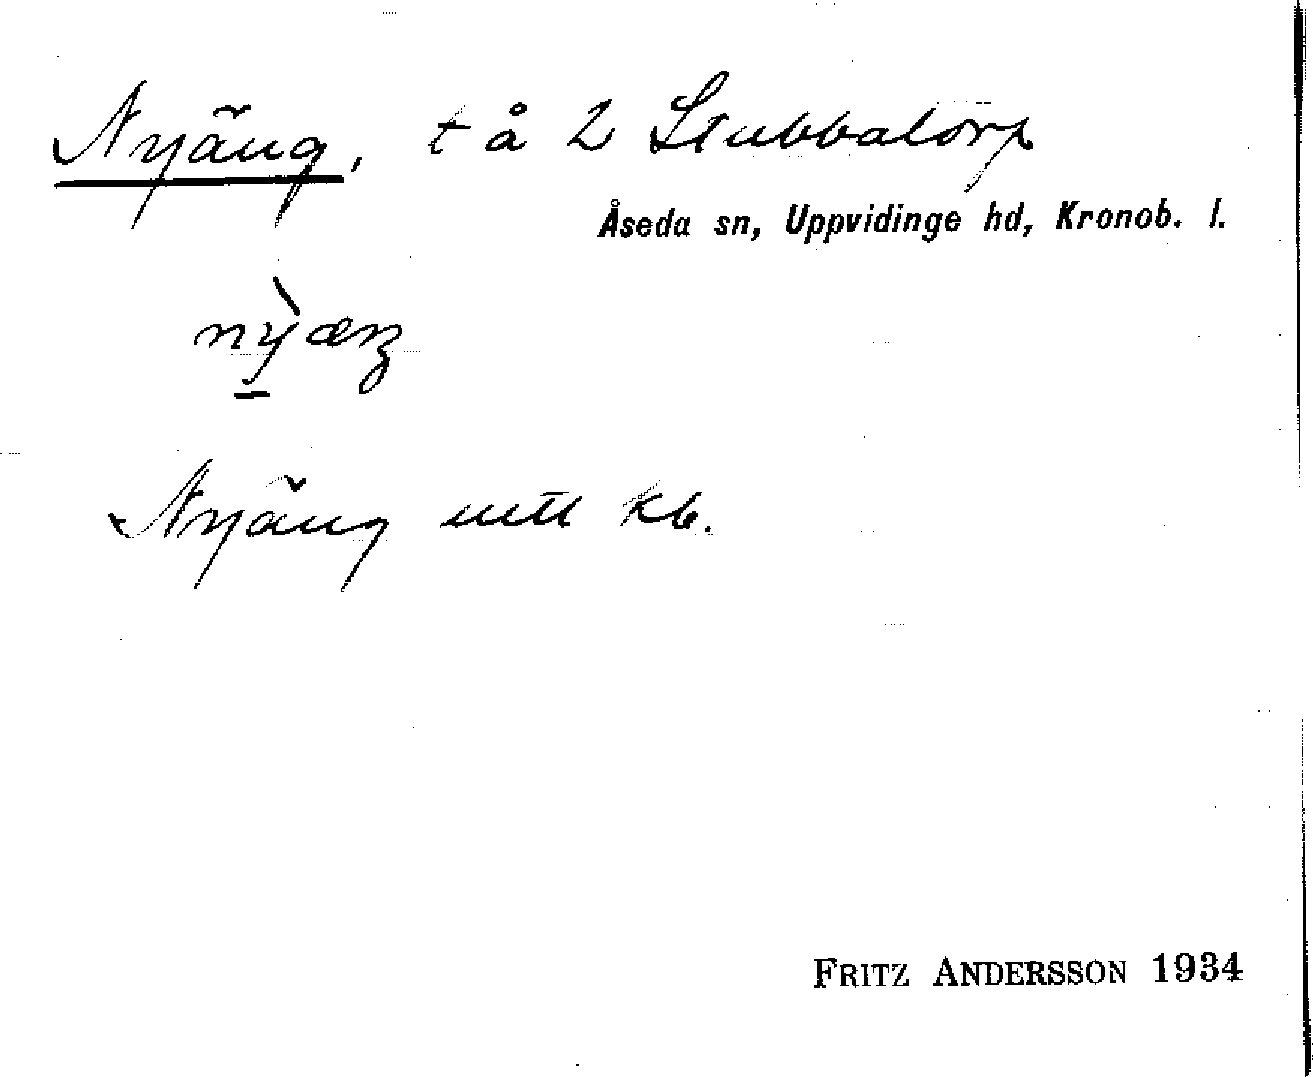 Nyäng, t å 2 Stubbatorp
Åseda sn, Uppvidinge hd, Kronob. l.
nỳæŋ
Nyäng uttt kb.
FRITZ ANDERSSON 1934